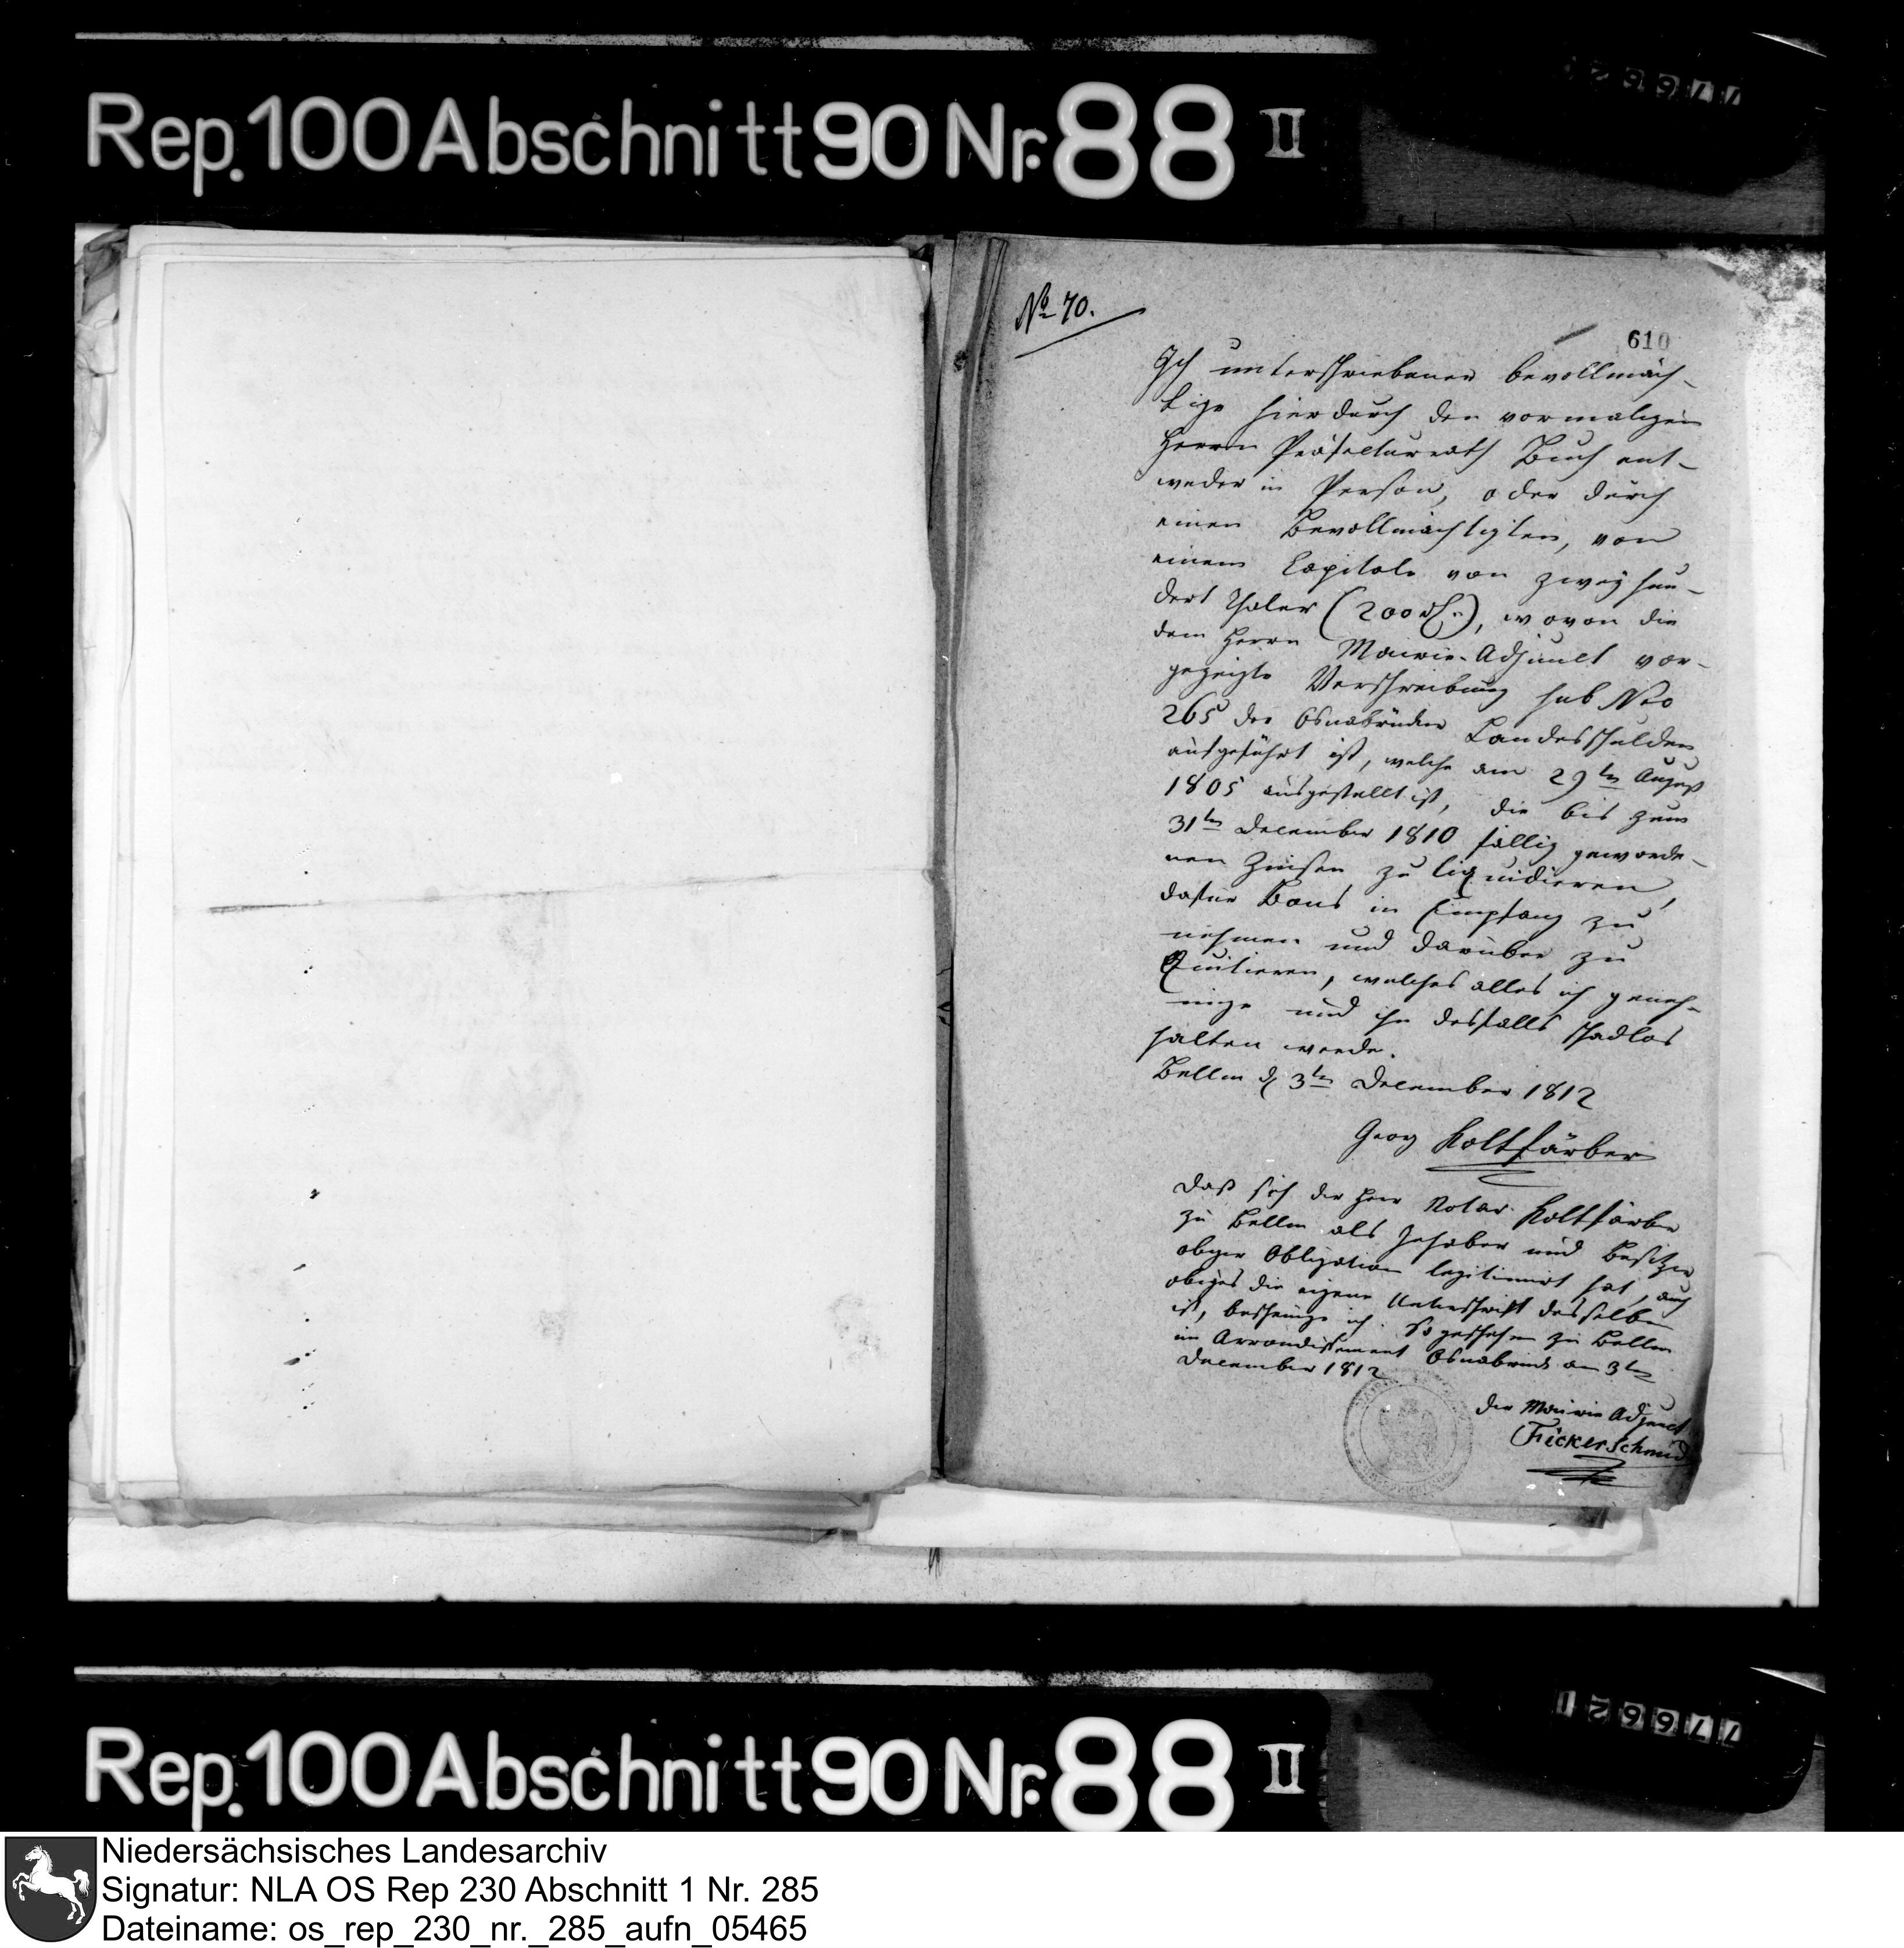 Rep. 100 Abschnitt 90 Nr. 88 II
No 70.
610
Ich unterschriebener bevollmäch-
tige hierdurch den vormaligen
Herrn Präfecturrath Buch ent-
weder in Person, oder durch
einen Bevollmächtigten, von
einem Capitale von zweyhun-
dert Thaler (200 rthlr), wovon die
dem Herrn Mairie-Adjunct vor-
gezeigte Verschreibung sub Nro
265 der Osnabrücker Landesschulden
aufgeführt ist, welche am 29ten August
1805 ausgestellt ist, die bis zum
31ten December 1810 fällig geworde-
nen Zinsen zu liquidieren,
dafür Bons in Empfang zu
nehmen und darüber zu
Quitieren, welches alles ich geneh-
mige und ihn desfalls schadlos
halten werde.
Bellm d 3ten December 1812
Georg Koltfärber
Daß sich der Herr Notar Koltfärber
zu Bellm als Inhaber und Besitzer
obiger Obligation legitimirt hat, auch
obiges die eigene Unterschrift desselben
ist, bescheinige ich. So geschehen zu Bellm
im Arrondissement Osnabrück am 3ten
December 1812
Der Mairie Adjunct
Fickerschmid
Rep. 100 Abschnitt 90 Nr. 88 II
126677
Niedersächsisches Landesarchiv
Signatur: NLA OS Rep 230 Abschnitt 1 Nr. 285
Dateiname: os_rep_230_nr._285_aufn_05465